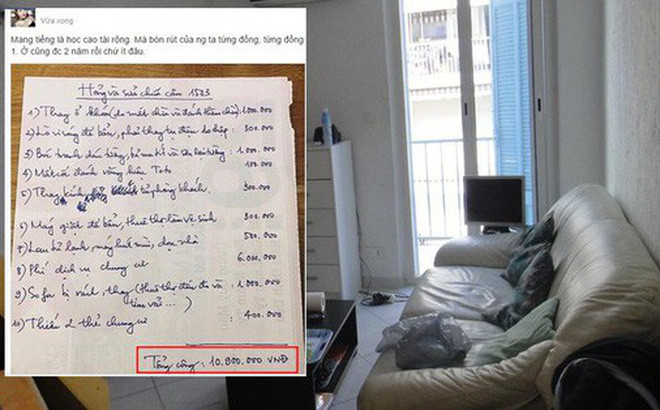 Vừa xong
Mang tiếng là học cao tài rộng. Mà bòn rút của ng ta từng đồng, từng đồng
1. Ở cũng đc 2 năm rồi chứ ít đâu.
Hỏng và sửa chữa căn 1523
1) Thay ổ khóa (do mất chìa và đánh thêm chìa): 1.000.000
2) Lò vi sóng để bẩn, phải thay tụ điện do chập : 500.000
3) Bóc tranh dán tường, bả ma tít và sơn lại tường : 1.000.000
4) Mất cái đánh răng hiệu Toto 100.000
5) Thay kính tủ phòng khách. 300.000
6) Máy giặt để bẩn, thuê thợ làm vệ sinh 300.000
7) Lau tủ lạnh, máy hút mùi, dọn nhà 500.000
8) Phí dịch vụ chung cư 6.000.000
9) Sofa bị rách, thay (thuê thợ đến đo và : 1.000.000
tìm vải ... )
10) Thiếu 2 thẻ chung cư 400.000
Tổng cộng : 10.900.000 VNĐ